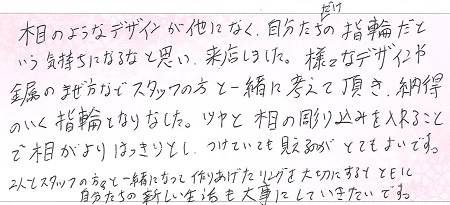 木目のようなデザインが他になく、自分たちだけの指輪だと
いう気持ちになるなと思い、来店しました。様々なデザインや
金属のまぜ方などスタッフの方と一緒に考えて頂き、納得
のいく指輪となりました。ツヤと木目の彫り込みを入れること
で木目がよりはっきりとし、つけていても見えるのがとてもよいです。
2人とスタッフの方々と一緒になって作りあげたリングを大切にするとともに
自分たちの新しい生活も大事にしていきたいです。